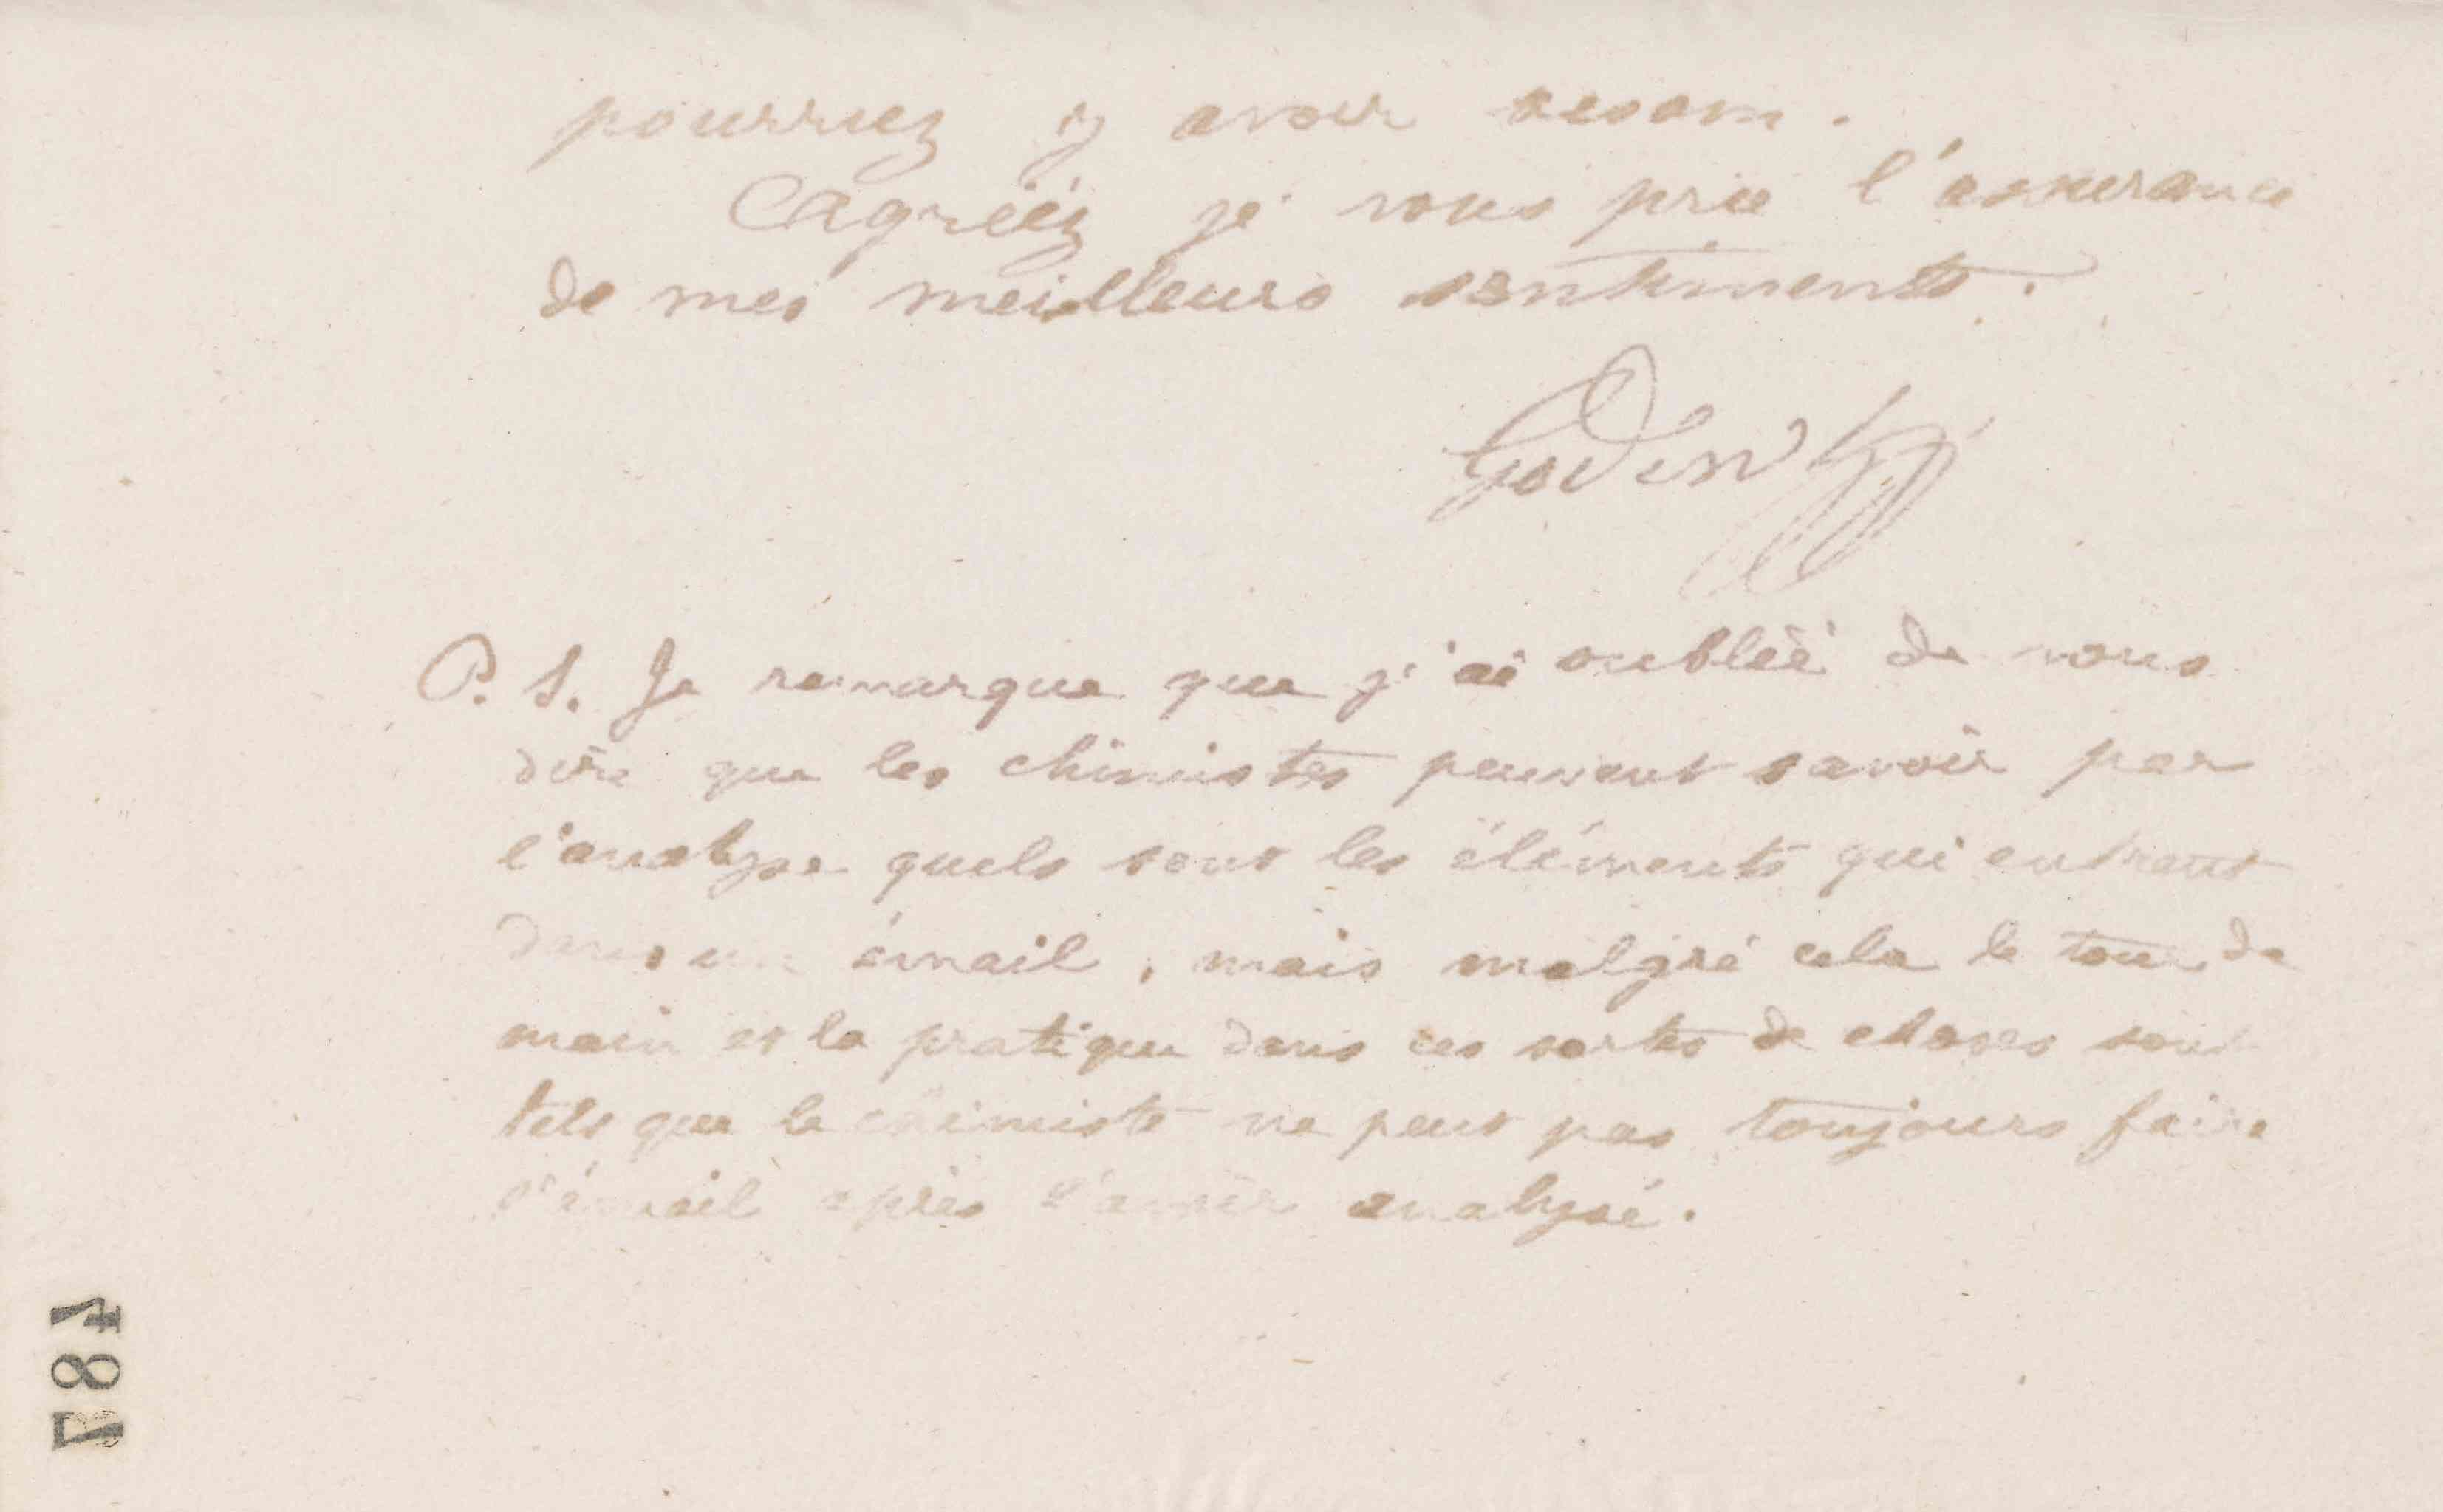 pourriez y avoir besoin.
Agréez je vous prie l'assurance
de mes meilleurs sentiments.
Godin
P. S. Je remarque que j'ai oublié de vous
dire que les chimistes peuvent savoir par
l'analyse quels sont les éléments qui entrent
dans un émail, mais malgré cela le tour de
main et la pratique dans ces sortes de choses sont
tels que le chimiste ne peut pas toujours faire
l'émail après l'avoir analysé.
487